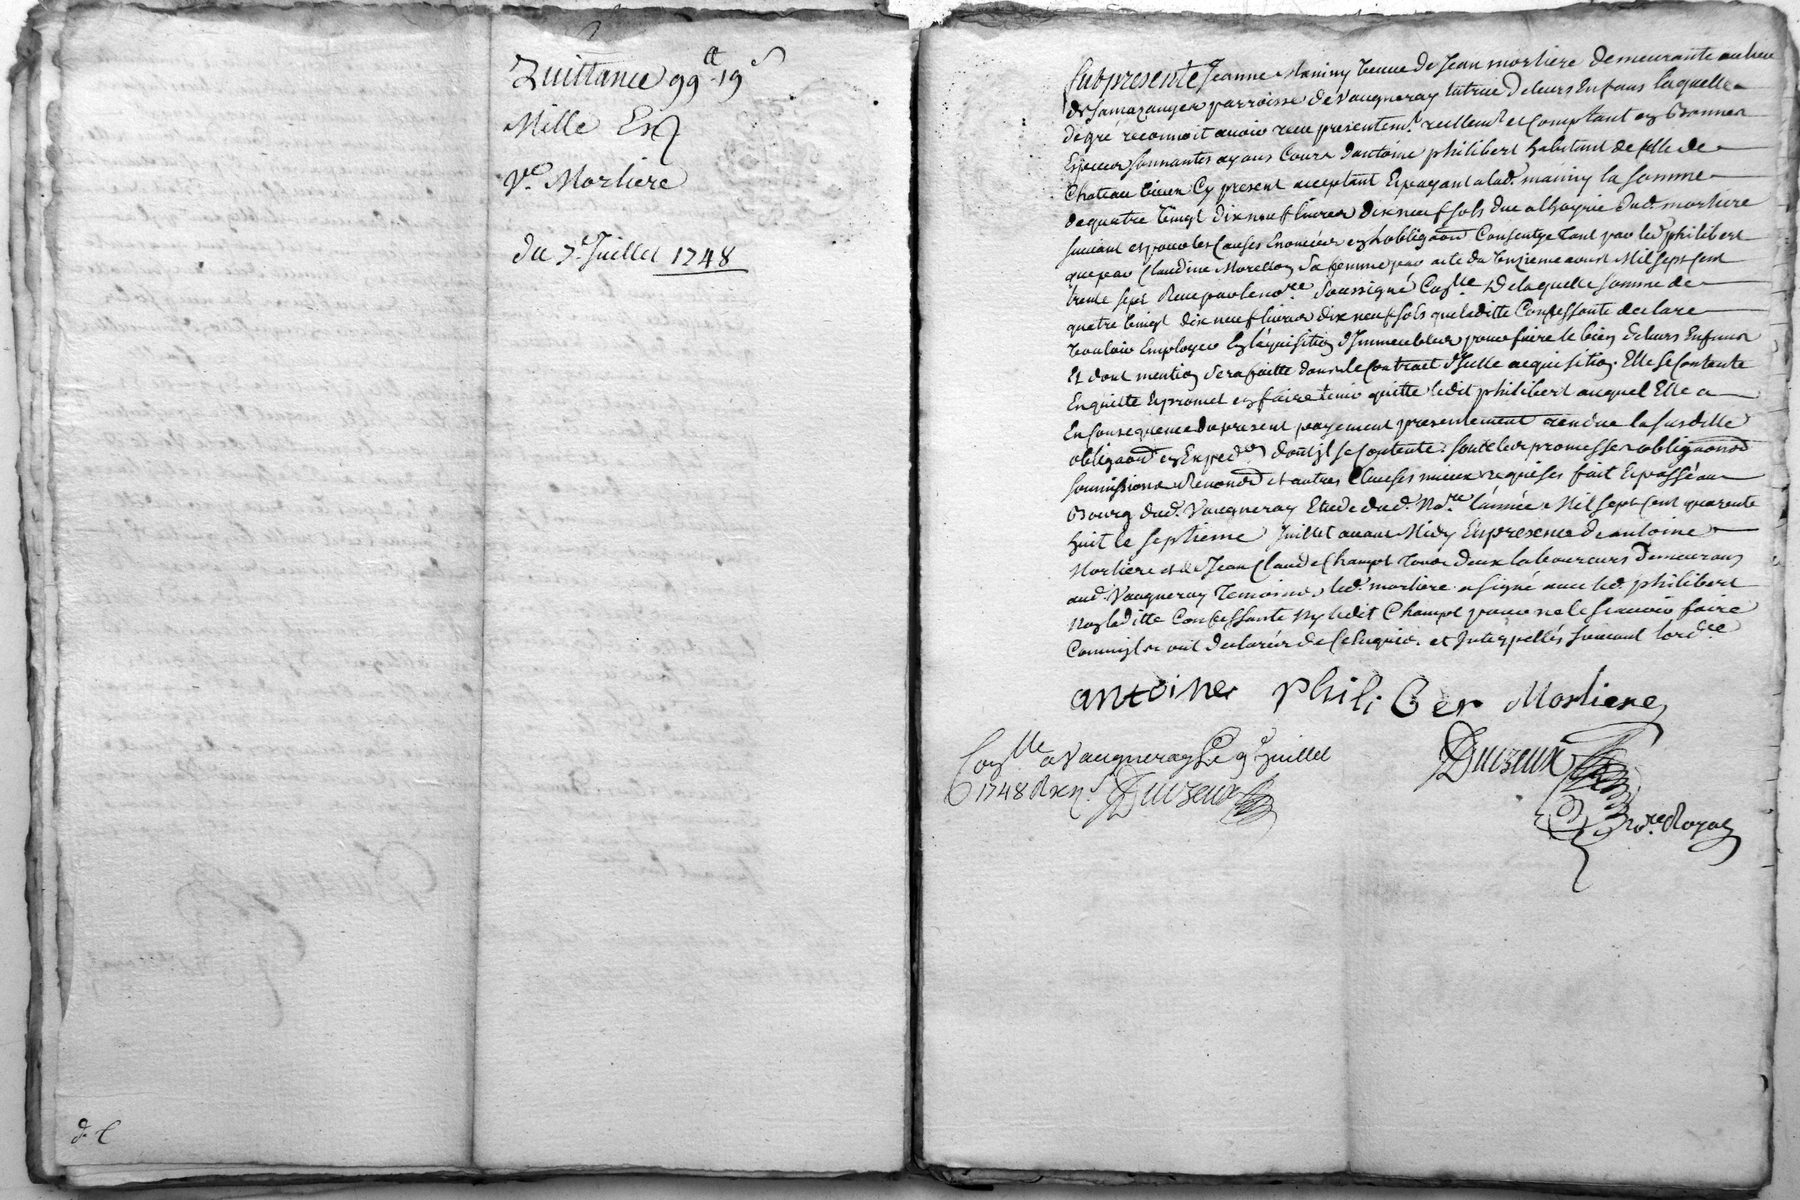 Quittance 99 tt 19 s
Mille
Ve. Morliere
du 7e. Juillet 1748
d. C
fut presente Jeanne Mainy veuve de Jean morliere demeurante au lieu
de parroisse de Vaugneray tutrice de leurs Enfans laquelle
de gré reconnoit avoir receu presentemt. reellemt. et Comptant en Bonnes
Espèces sonnantes ayans Cours d'antoine philibert habitant de
Chateau vieux Cy present acceptant Et payant a lad. mainy la somme
de quatre vingt dix neuf livres dix neuf sols due a l'hoyrie dud. morliere
suivant et pour les Causes Enoncées en L'obligaon Consentye tant par led. philibert
que par Claudine Morellon sa femme par acte du avril Mil sept Cent
trente sept Receu par le nore. soussigné De laquelle somme de
quatre vingt dix neuf livres dix neuf sols que laditte Confessante declare
vouloir Employer En L'equisition d'Immeubles pour faire le bien de leurs Enfans
Et dont mention sera faitte dans le Contract d'Icelle acquisition. Elle se Contente
En quitte Et promet en faire tenir quitte ledit philibert auquel Elle a
En Consequence du present payement presentement rendue la susditte
obligaon en Expedon dont il se Contente. sous leur promesses obligaons
soumissions Renonons et autres Clauses mieux requises fait Et passé au
Bourg dud. Vaugneray Etude dud. Nore. l'année Mil sept Cent quarente
huit le septieme Juillet avant Midy En presence de antoine
Morliere et de Jean Claude Champt tous deux laboureurs Demeurans
aud. Vaugneray temoins, led. morliere a signé avec led. philibert
Non laditte Confessante Ny ledit Champt pour ne le scavoir faire
Comm'ils ont declarés de Ce Enquis. et Interpellés suivant l'ordce
antoine philiber Morliere
Conlle a Vaugneray Le 9e Juillet
1748 R
Nore. Royal